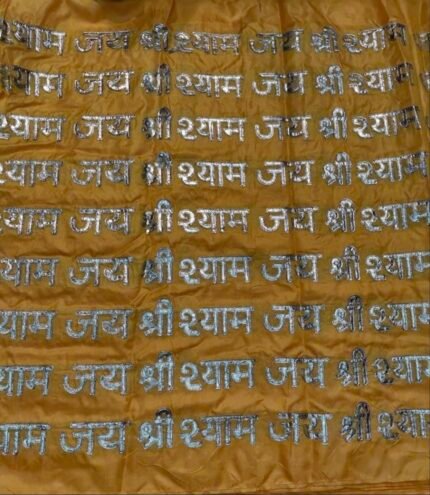 श्याम जय श्री श्याम जय श्री श्याम
श्याम जय श्री श्याम जय श्री श्याम
श्याम जय श्री श्याम जय श्री श्याम
श्याम जय श्री श्याम जय श्री श्याम
श्याम जय श्री श्याम जय श्री श्याम
श्याम जय श्री श्याम जय श्री श्याम
श्याम जय श्री श्याम जय श्री श्याम
श्याम जय श्री श्याम जय श्री श्याम
श्याम जय श्री श्याम जय श्री श्याम